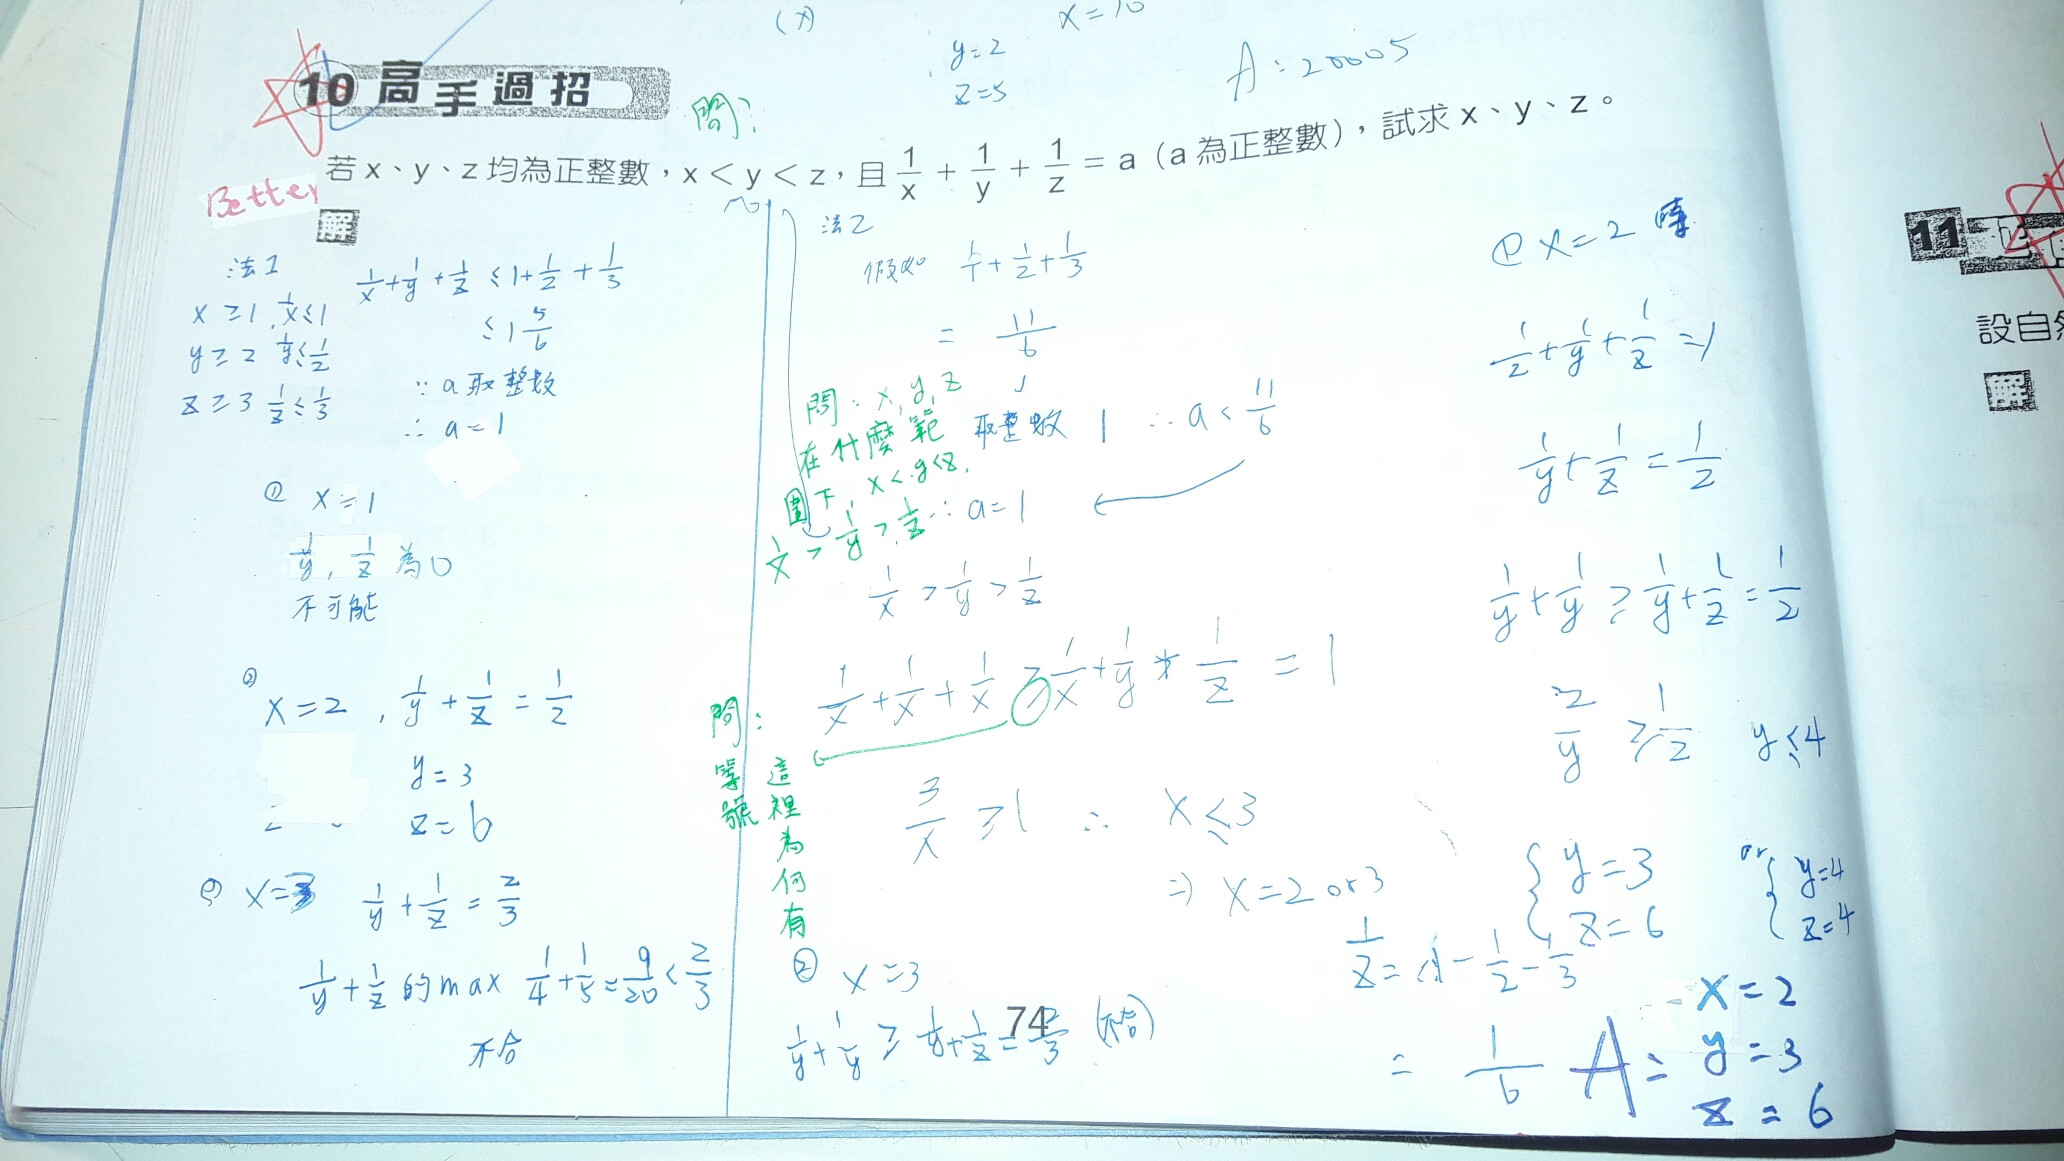 (x)
x=10
y=2
z=5
A:20005
10 高手過招
問?
若 x、y、z 均為正整數，x < y < z，且 1/x + 1/y + 1/z = a（a 為正整數），試求 x、y、z。
Better
解
法1
x ≥ 1, 1/x ≤ 1
y ≥ 2 1/y ≤ 1/2
z ≥ 3 1/z ≤ 1/3
1/x + 1/y + 1/z ≤ 1 + 1/2 + 1/3
≤ 1 5/6
∵ a 取整數
∴ a = 1
① x = 1
1/y, 1/z 為0
不可能
② x = 2, 1/y + 1/z = 1/2
y = 3
z = 6
③ x = 3 1/y + 1/z = 2/3
1/y + 1/z 的 max 1/4 + 1/5 = 9/20 < 2/3
不合
法2
假如 1/1 + 1/2 + 1/3
= 11/6
取整數 1 ∴ a < 11/6
∴ a = 1
問: x, y, z
在什麼範
圍下, x < y < z,
1/x > 1/y > 1/z
1/x > 1/y > 1/z
1/x + 1/x + 1/x ≥ 1/x + 1/y + 1/z = 1
問:這裡為何有等號
3/x ≥ 1 ∴ x ≤ 3
⇒ x = 2 or 3
② x = 3
1/y + 1/y ≥ 1/y + 1/z = 2/3 (不合)
74
① x = 2 時
1/2 + 1/y + 1/z = 1
1/y + 1/z = 1/2
1/y + 1/y ≥ 1/y + 1/z = 1/2
2/y ≥ 1/2 y ≤ 4
{ y = 3
z = 6
or { y = 4
z = 4
1/z = 1 - 1/2 - 1/3
= 1/6
A = x = 2
y = 3
z = 6
11
設自
解